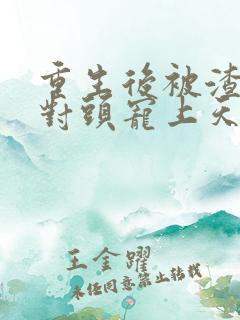 重生後被渣
對頭寵上天
王金躍
未经同意禁止转载